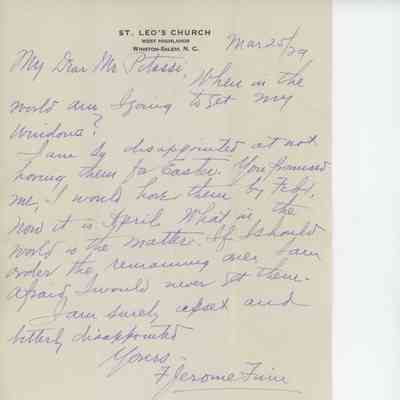 ST. LEO'S CHURCH
WEST HIGHLANDS
WINSTON-SALEM, N. C.
Mar 25/29
My Dear Mr. Pitassi,
When in the
world am I going to get my
windows?
I am so disappointed at not
having them for Easter. You promised
me, I would have them by Feby,
now it is April. What in the
world is the matter. If I should
order the, remaining ones I am
afraid I would never get them.
I am surely upset and
bitterly disappointed
Yours.
F Jerome Finn